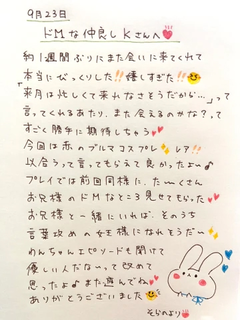 9月23日
ドMな仲良しKさんへ
約1週間ぶりにまた会いに来てくれて
本当にびっくりした!!嬉しすぎた!!
「来月は忙しくて来れなさそうだから…」って
言ってくれるあたり、また会えるのかな?って
すごく勝手に期待しちゃう
今回は赤のブルマでコスプレ レア!!
似合うって言ってもらえて良かったよ〜♪
プレイでは前回同様に、たーくさん
お兄様のドMなところ見せてもらった
お兄様と一緒にいれば、そのうち
言葉攻めの女王様になれそうだ〜
めんちゃんエピソードも聞けて
優しい人だな〜って改めて
思ったよ♪また遊んでね
ありがとうございました
そらのより